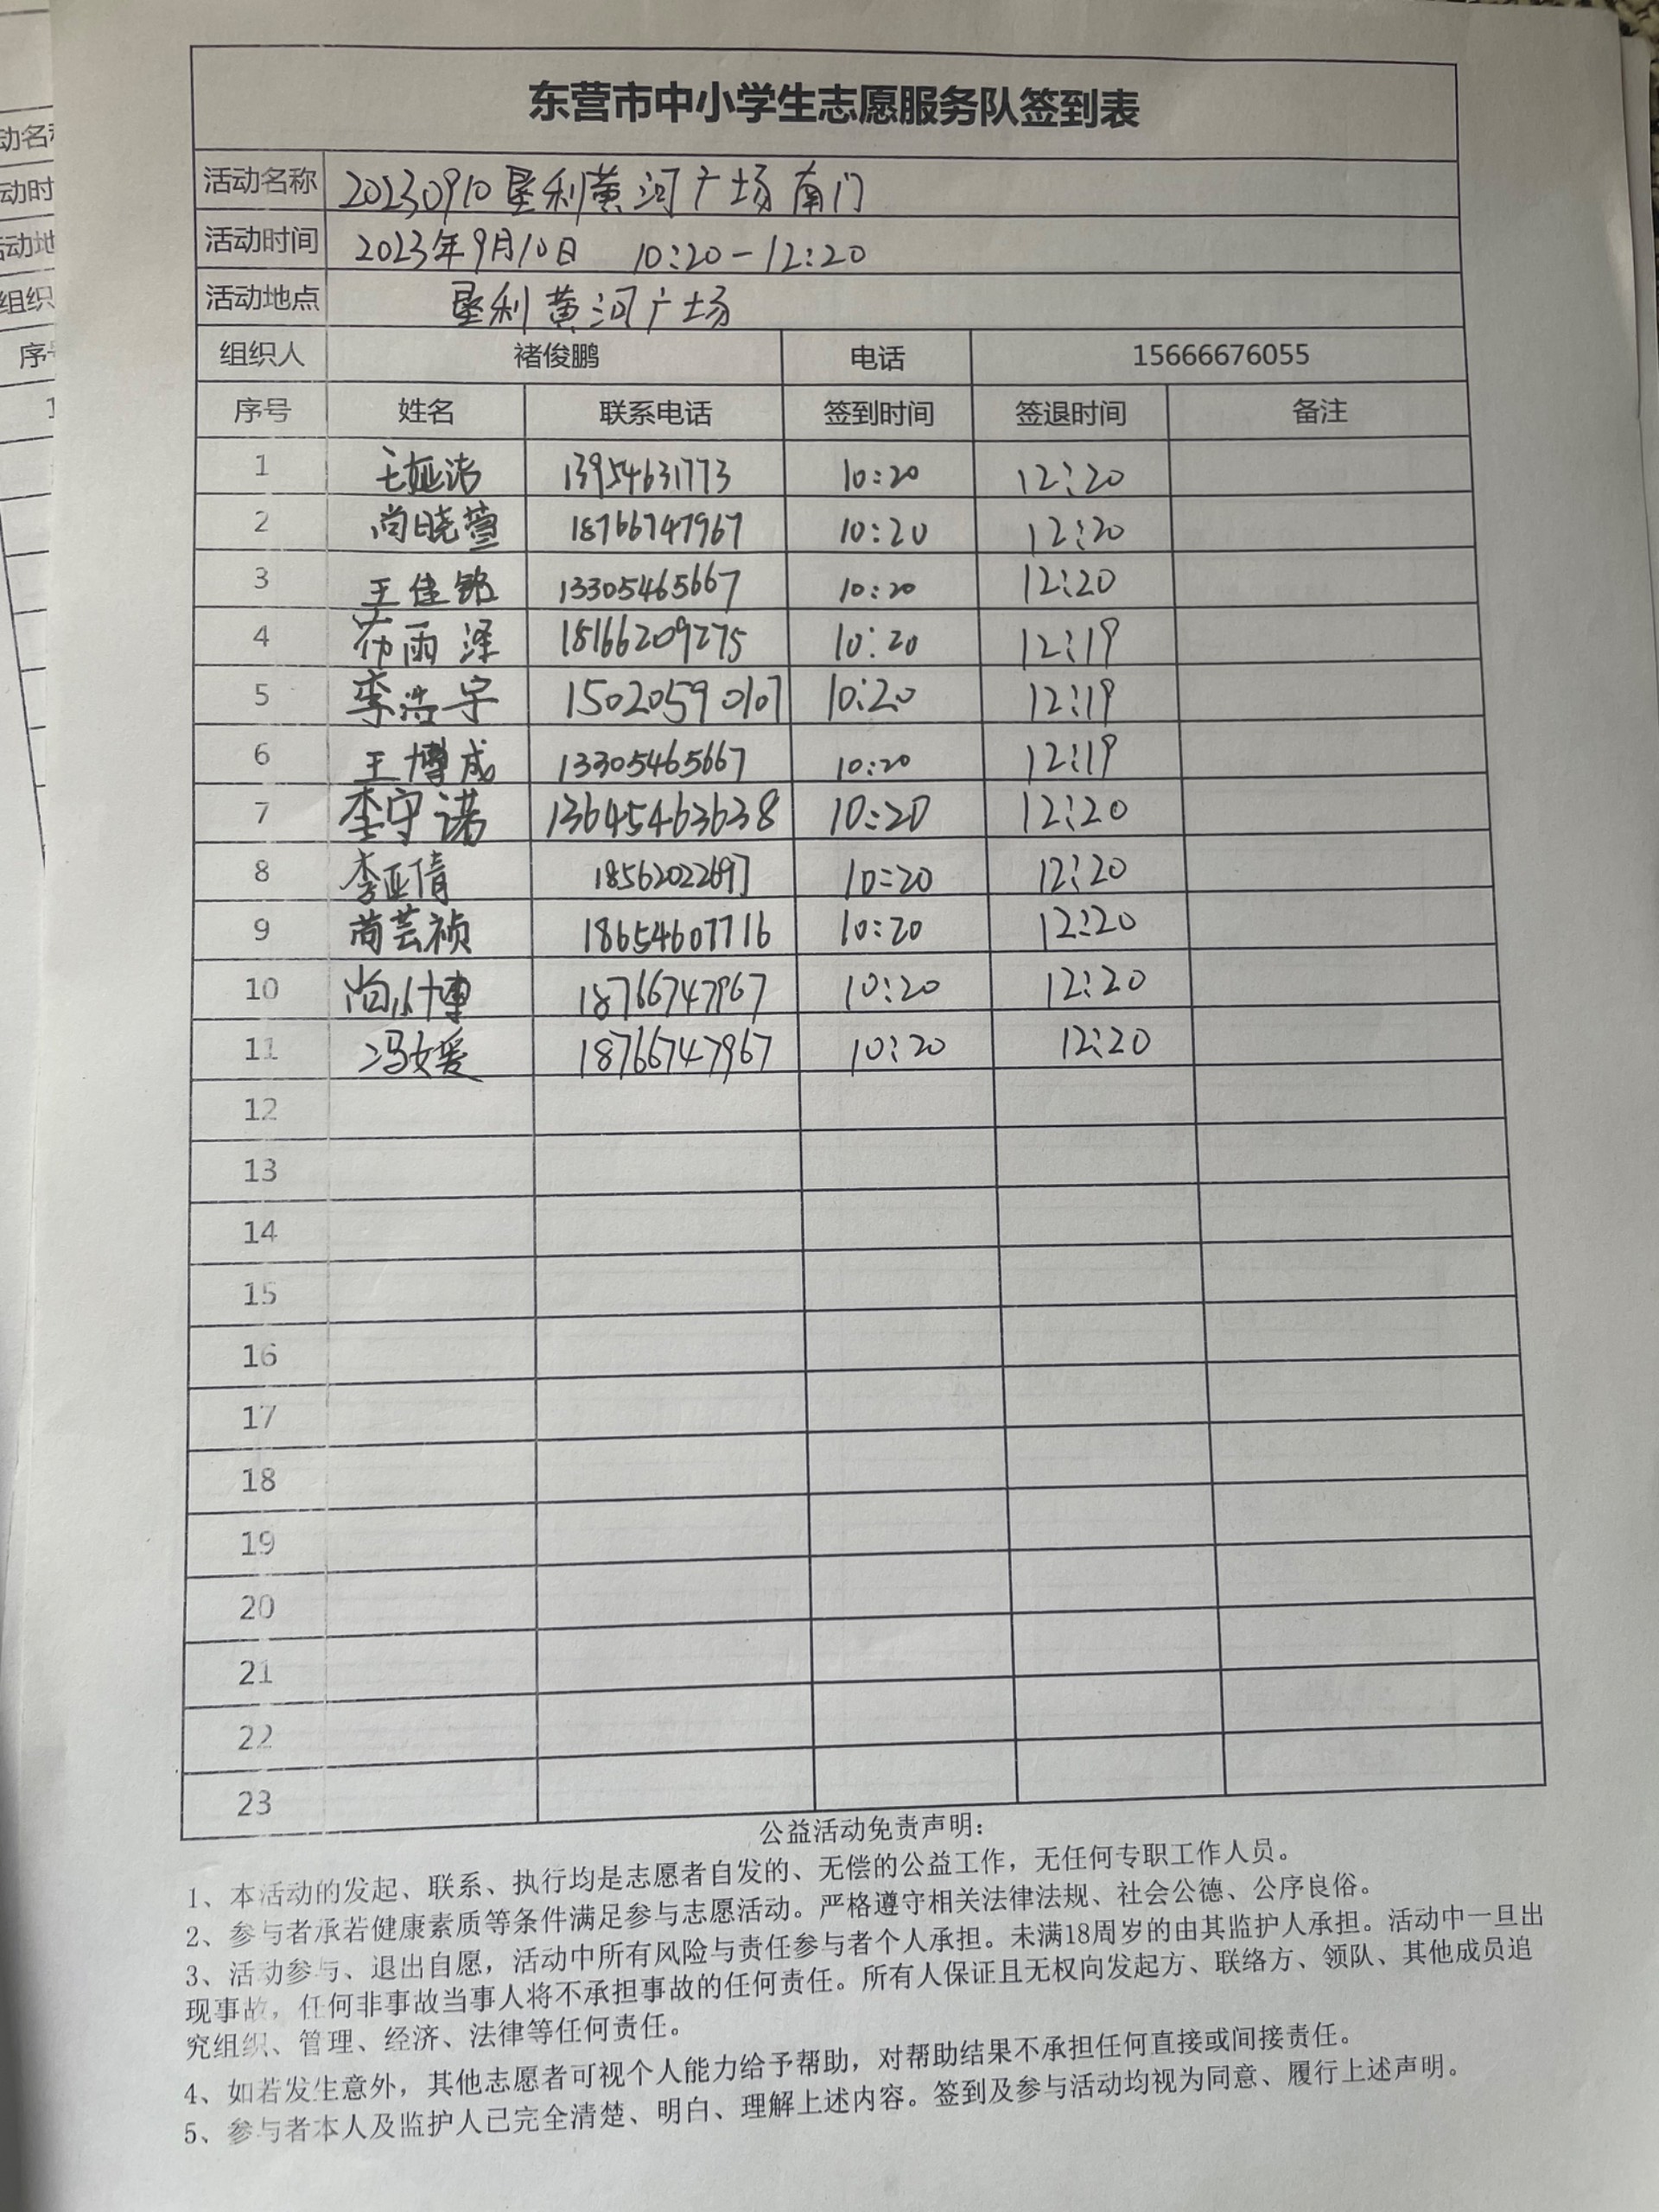 东营市中小学生志愿服务队签到表
活动名称 20230910垦利黄河广场南门
活动时间 2023年9月10日 10:20-12:20
活动地点 垦利黄河广场
组织人 褚俊鹏 电话 15666676055
序号 姓名 联系电话 签到时间 签退时间 备注
1 王娅洁 13954631773 10:20 12:20
2 尚晓萱 18766747967 10:20 12:20
3 王佳铭 13305465667 10:20 12:20
4 雨泽 18166209275 10:20 12:19
5 李浩宇 15020590107 10:20 12:19
6 王博成 13305465667 10:20 12:19
7 李守诺 13645463638 10:20 12:20
8 李亚倩 18562022697 10:20 12:20
9 芸祯 18654607716 10:20 12:20
10 尚博 18766747967 10:20 12:20
11 冯媛 18766747967 10:20 12:20
12
13
14
15
16
17
18
19
20
21
22
23
公益活动免责声明：
1、本活动的发起、联系、执行均是志愿者自发的、无偿的公益工作，无任何专职工作人员。
2、参与者承若健康素质等条件满足参与志愿活动。严格遵守相关法律法规、社会公德、公序良俗。
3、活动参与、退出自愿，活动中所有风险与责任参与者个人承担。未满18周岁的由其监护人承担。活动中一旦出
现事故，任何非事故当事人将不承担事故的任何责任。所有人保证且无权向发起方、联络方、领队、其他成员追
究组织、管理、经济、法律等任何责任。
4、如若发生意外，其他志愿者可视个人能力给予帮助，对帮助结果不承担任何直接或间接责任。
5、参与者本人及监护人已完全清楚、明白、理解上述内容。签到及参与活动均视为同意、履行上述声明。